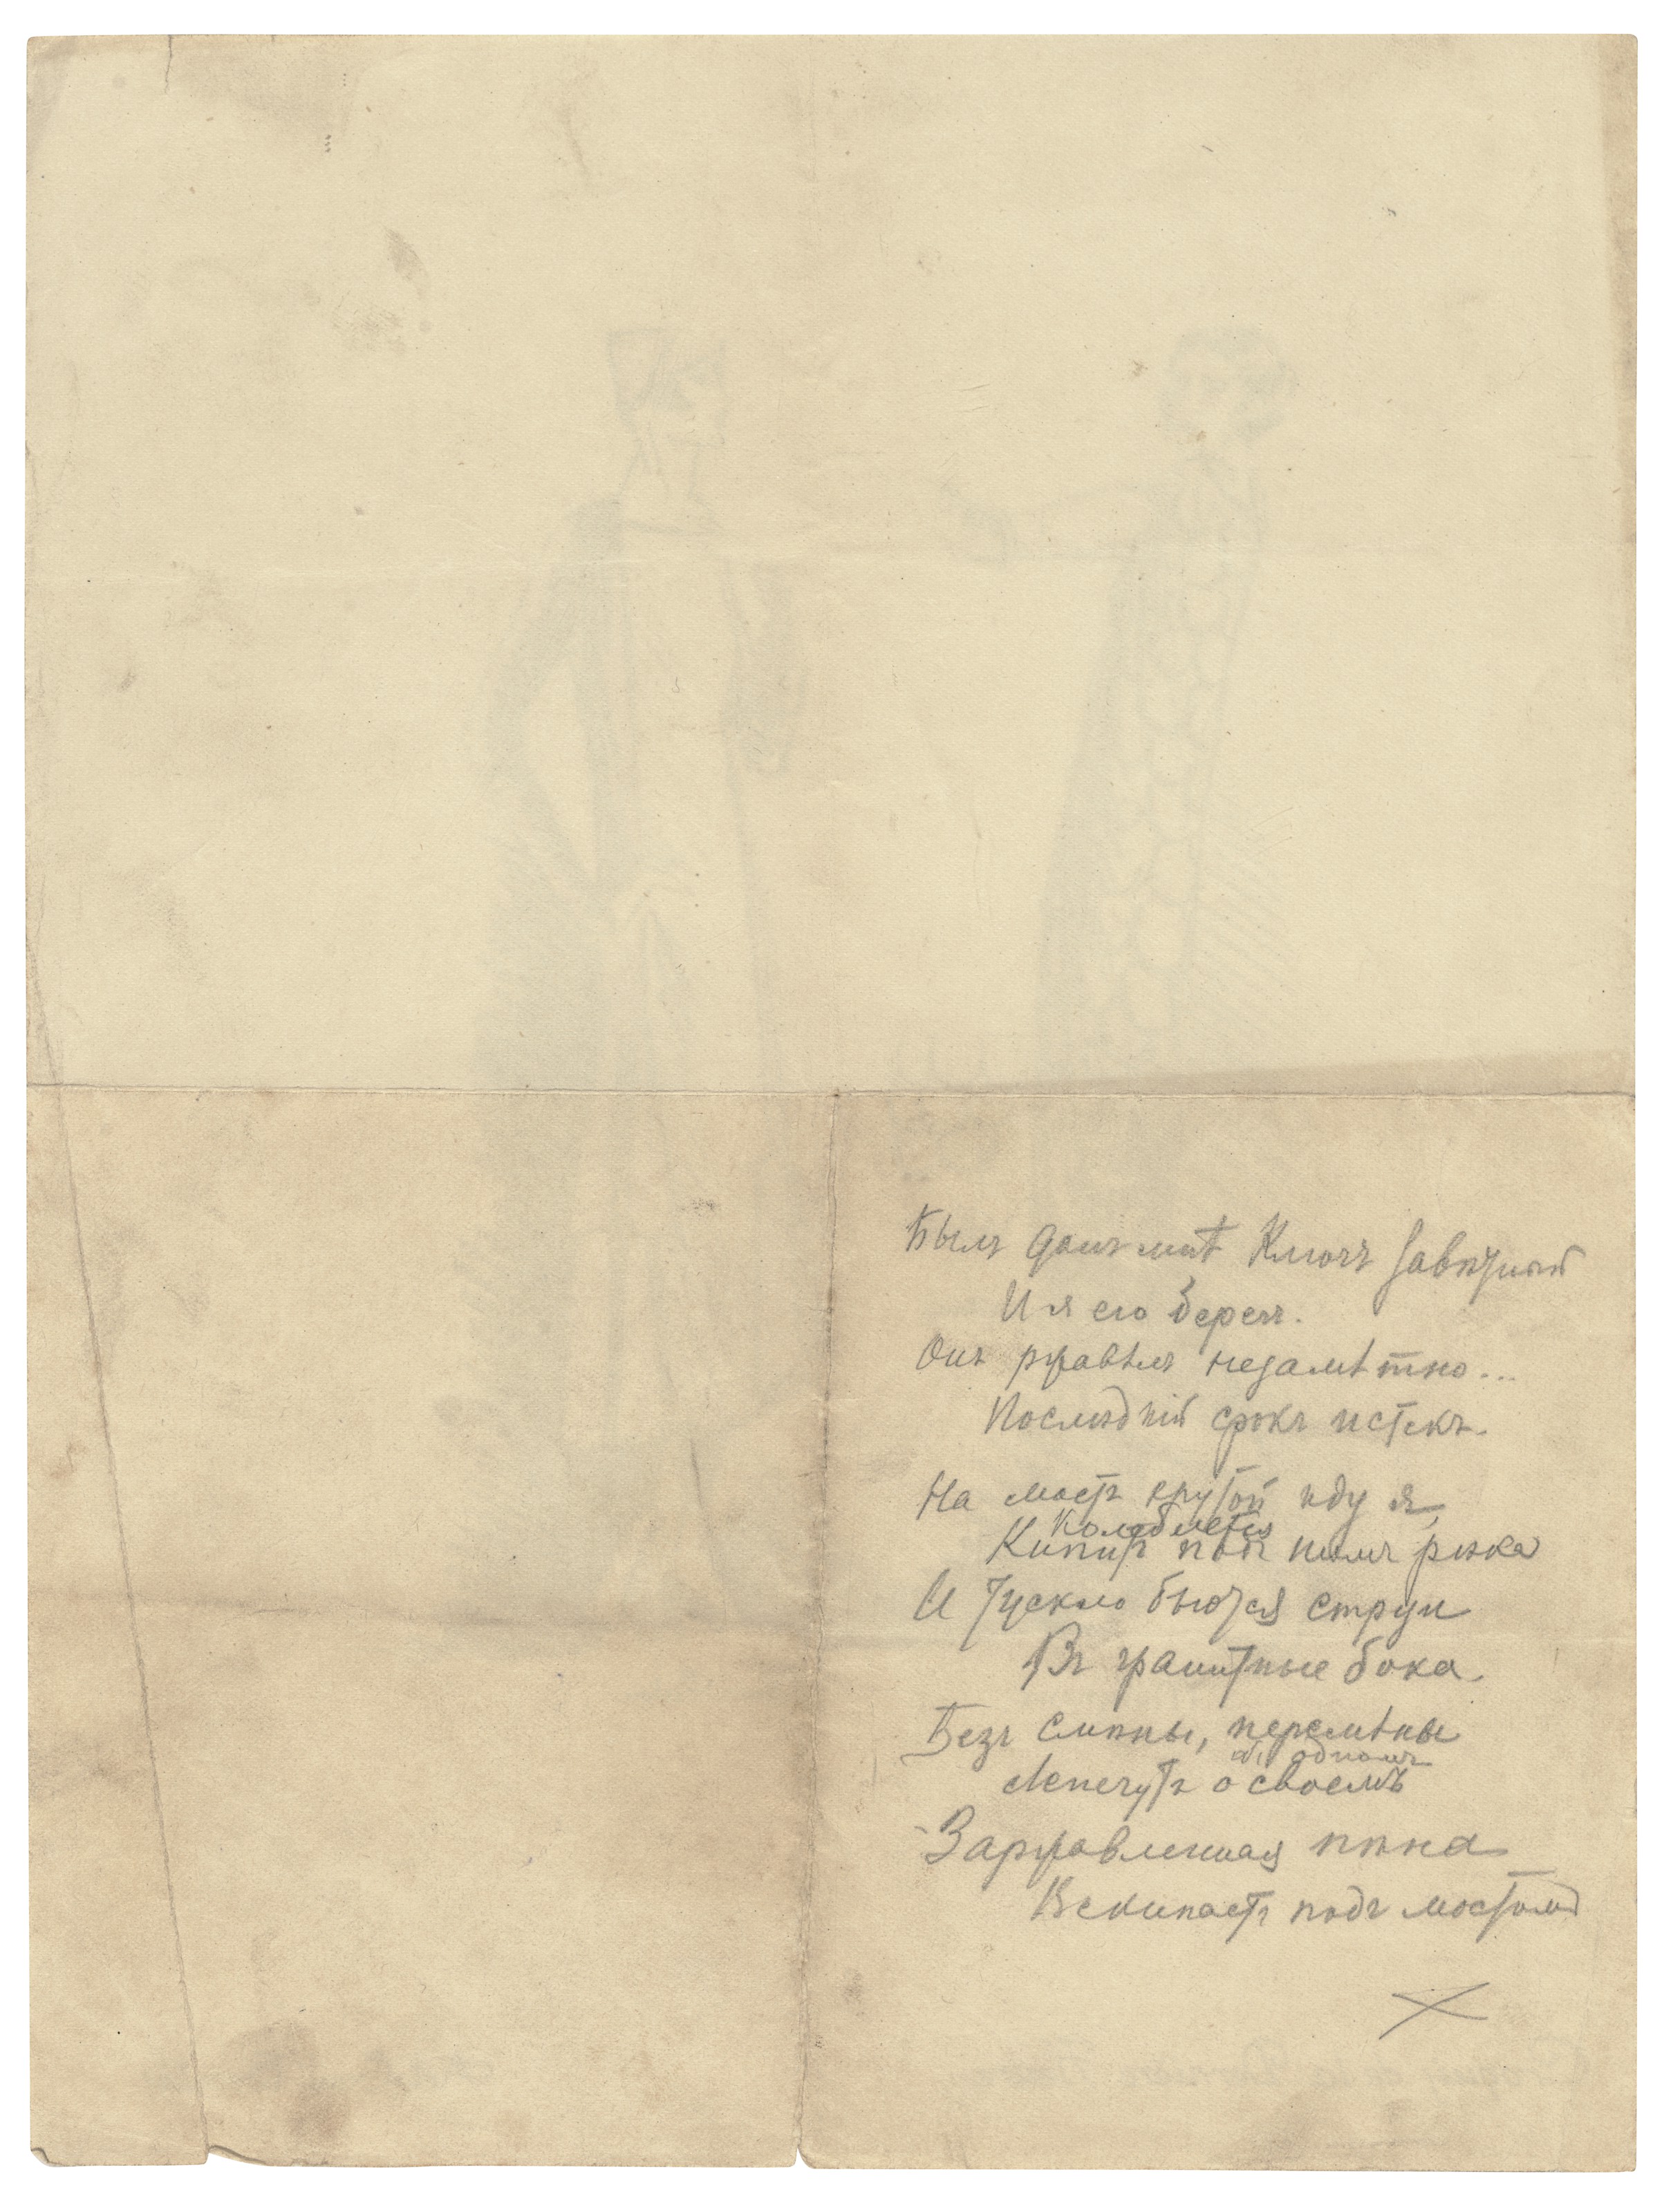 Былъ данъ мнѣ Ключъ завѣтный
И я его берегъ.
Онъ ржавѣлъ незамѣтно...
Послѣдній срокъ истекъ.
На мостъ крутой иду я,
Колеблется
Кипитъ подъ нимъ рѣка
И тускло бьются струи
Въ гранитные бока.
Безъ смѣны, перемѣны
объ одномъ
Лепечутъ о своемъ
Заржавленная пѣна
Вскипаетъ подъ мостомъ